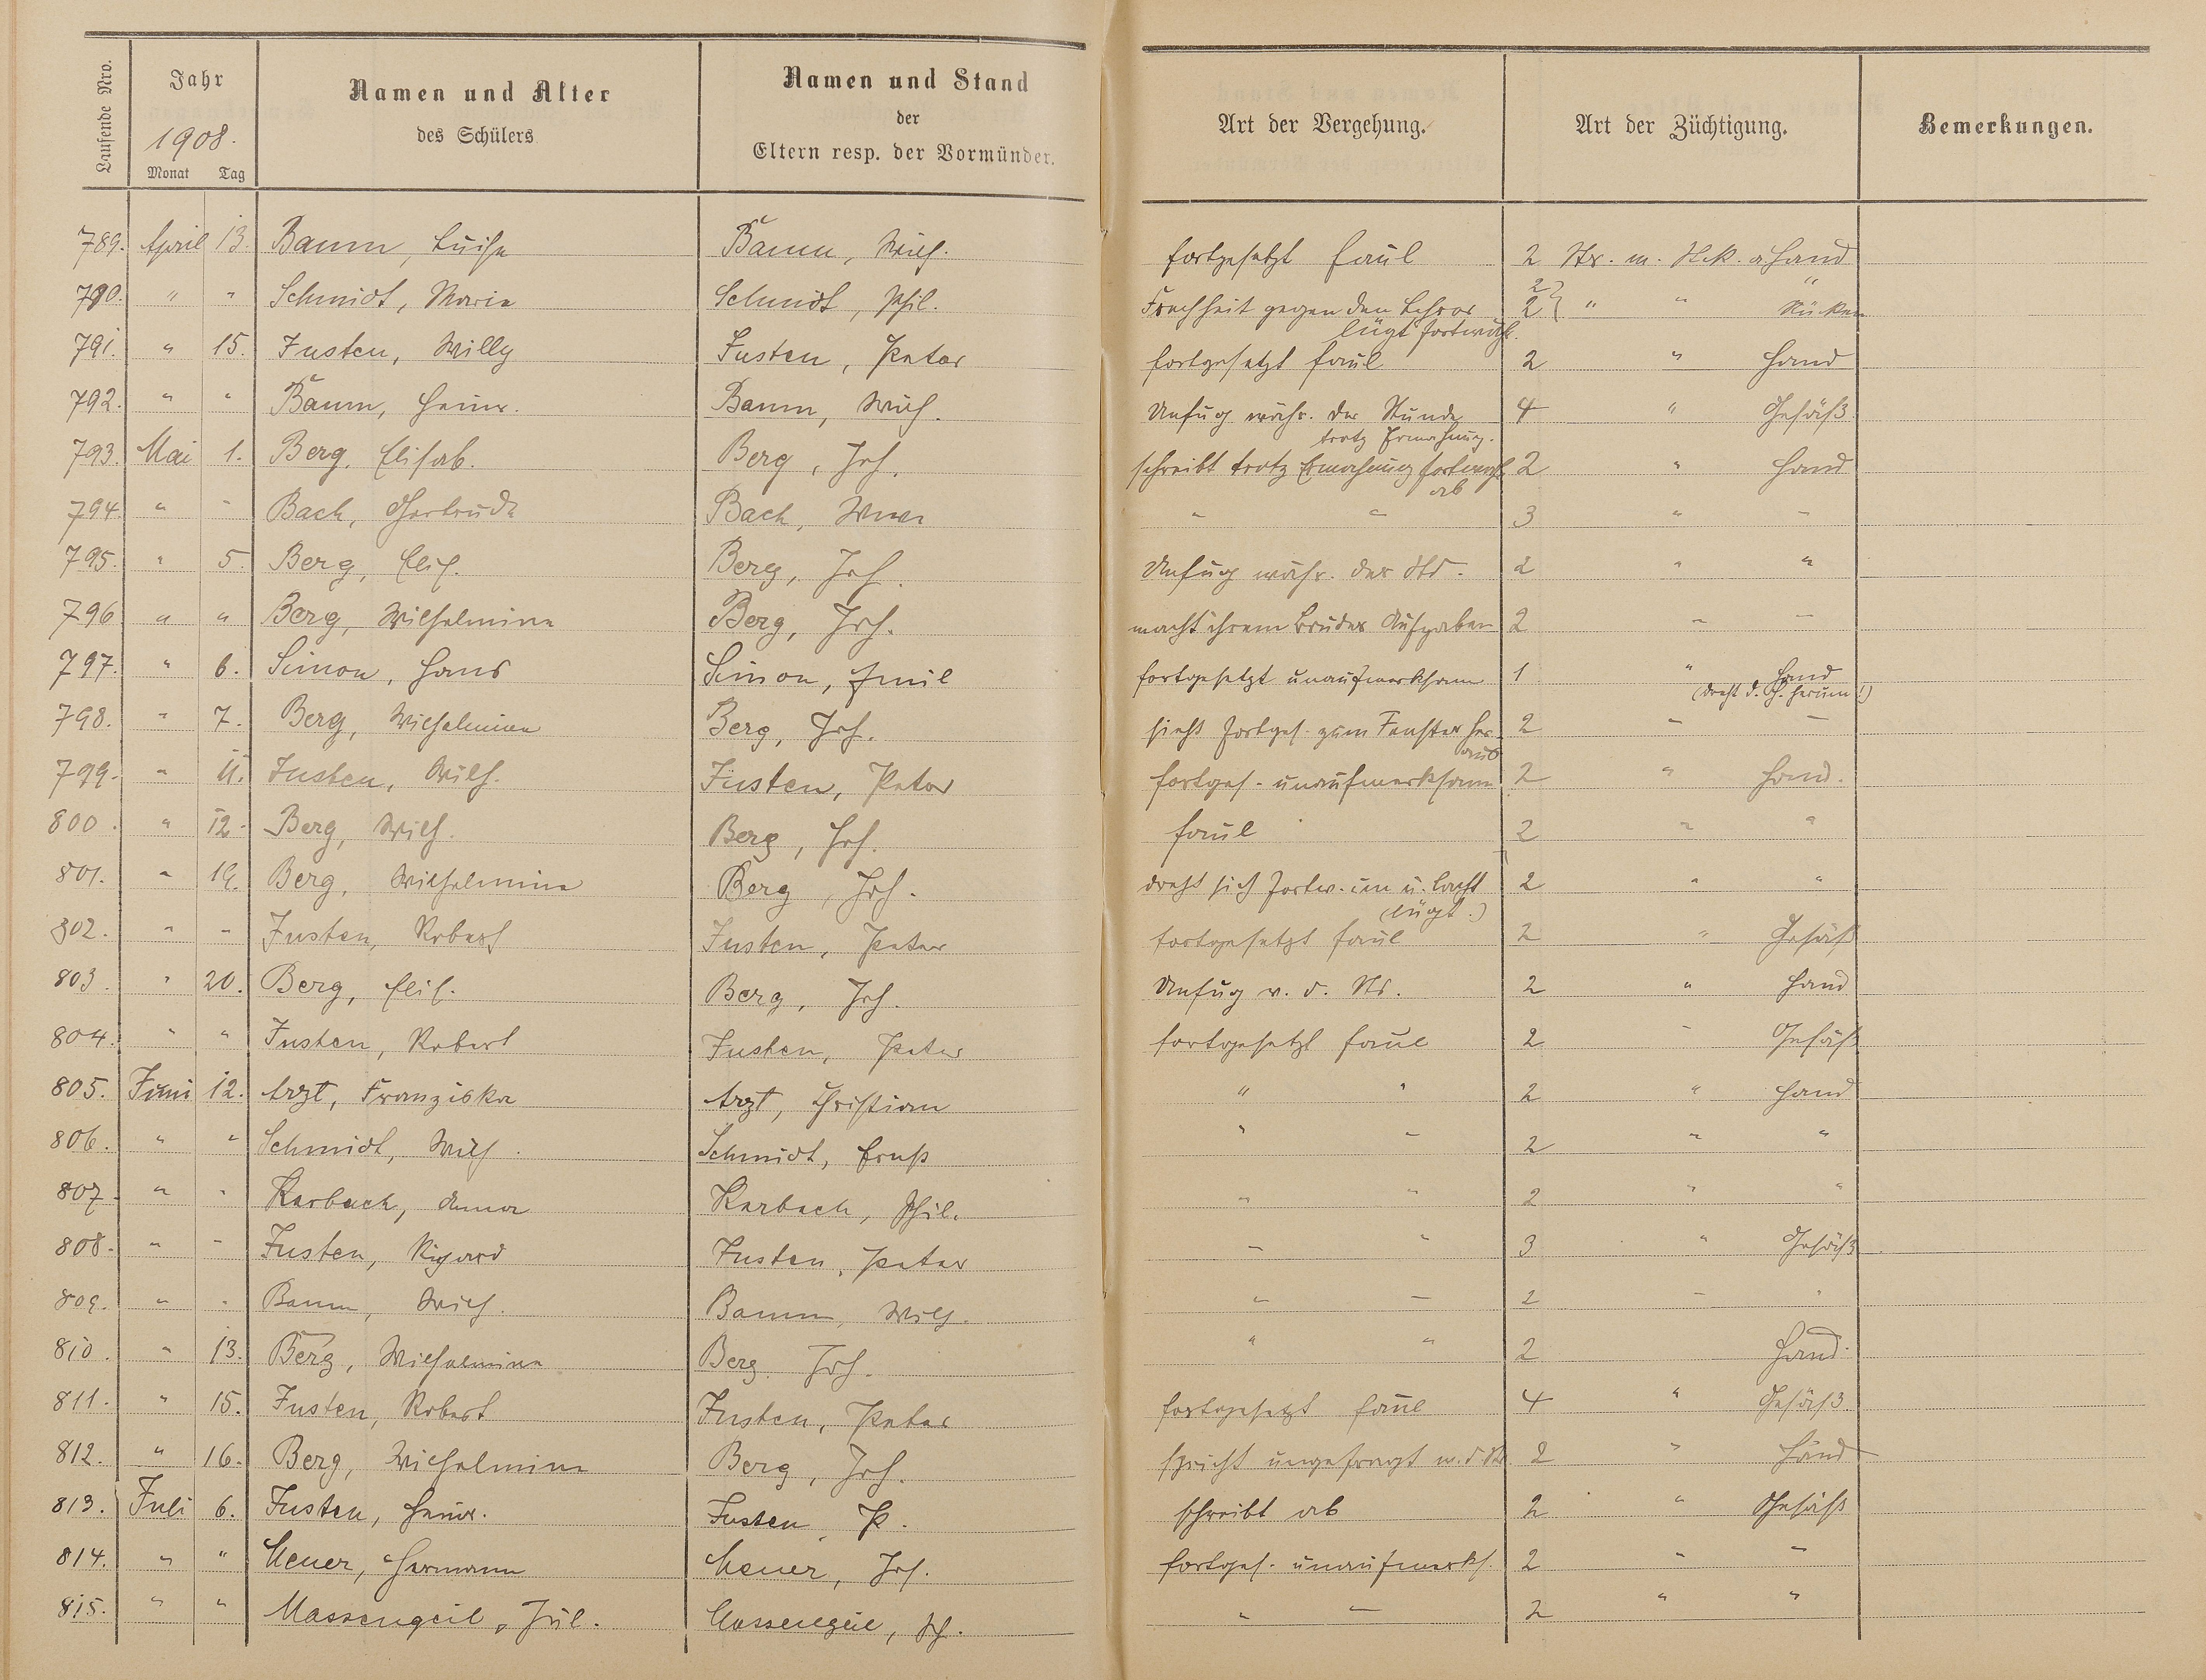 Laufende Nro. | Jahr 1908. Monat Tag | Namen und Alter des Schülers | Namen und Stand der Eltern resp. der Vormünder. | Art der Vergehung. | Art der Züchtigung. | Bemerkungen.
789. April 13. Baum, Luise | Baum, Wilh. | fortgesetzt faul | 2 Str. m. Stck. a Hand
790. " " Schmidt, Maria | Schmidt, Phil. | Frechheit gegen den Lehrer lügt fortwäh. | 2 2 } " " " Rücken
791. " 15. Justen, Willy | Justen, Peter | fortgesetzt faul | 2 " Hand
792. " " Baum, Heinr. | Baum, Wilh. | Unfug währ. der Stunde trotz Ermahnung. | 4 " Gesäß
793. Mai 1. Berg, Elisab. | Berg, Joh. | schreibt trotz Ermahnung fortwähr. ab | 2 " Hand
794. " " Bach, Gertrude | Bach, Wwe | " " | 3 " "
795. " 5. Berg, Elis. | Berg, Joh. | Unfug währ. der Std. | 2 " "
796 " " Berg, Wilhelmine | Berg, Joh. | macht ihrem Bruder Aufgaben | 2 " "
797. " 6. Simon, Hans | Simon, Emil | fortgesetzt unaufmerksam | 1 " Hand (dreht d. H. herum!)
798. " 7. Berg, Wilhelmine | Berg, Joh. | sieht fortges. zum Fenster heraus | 2 " "
799. " 11. Justen, Wilh. | Justen, Peter | fortges. unaufmerksam | 2 " Hand.
800. " 12. Berg, Wilh. | Berg, Joh. | faul | 2 " "
801. " 19. Berg, Wilhelmine | Berg, Joh. | dreht sich fortw. um u. lacht (lügt.) | 2 " "
802. " " Justen, Robert | Justen, Peter | fortgesetzt faul | 2 " Gesäß
803. " 20. Berg, Elis. | Berg, Joh. | Unfug w. d. Std. | 2 " Hand
804. " " Justen, Robert | Justen, Peter | fortgesetzt faul | 2 " Gesäß
805. Juni 12. Arzt, Franziska | Arzt, Christian | " " | 2 " Hand
806. " " Schmidt, Wilh. | Schmidt, Ernst | " " | 2 " "
807. " " Karbach, Anna | Karbach, Phil. | " " | 2 " "
808. " " Justen, Richard | Justen, Peter | " " | 3 " Gesäß
809. " " Baum, Wilh. | Baum, Wilh. | " " | 2 " "
810. " 13. Berg, Wilhelmine | Berg, Joh. | " " | 2 Hand.
811. " 15. Justen, Robert | Justen, Peter | fortgesetzt faul | 4 " Gesäß
812. " 16. Berg, Wilhelmine | Berg, Joh. | spricht ungefragt w. d. Std. | 2 " Hand
813. Juli 6. Justen, Heinr. | Justen, P. | schreibt ab | 2 " Gesäß
814. " " Meuer, Hermann | Meuer, Joh. | fortges. unaufmerks. | 2 " "
815. " " Massengeil, Jul. | Massengeil, | " " | 2 " "